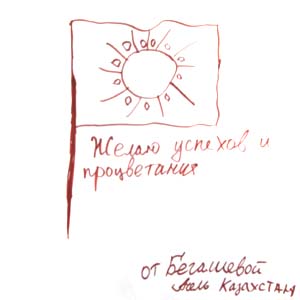 Желаю успехов и
процветания
от Бегашевой
Казахстан